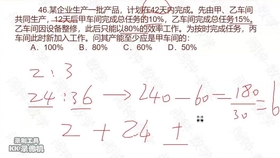 46.某企业生产一批产品，计划在42天内完成。先由甲、乙车间
共同生产，12天后甲车间完成总任务的10%，乙车间完成总任务15%。
乙车间因设备整修，此后只能以80%的效率工作。为按时完成任务，丙
车间此时新加入工作。问其产能至少应是甲车间的：
A．100% B．80% C．60% D．50%
2 : 3
24 : 36 → 240 — 60 = 180/30 = 6
2 + 24 +
KK录像机